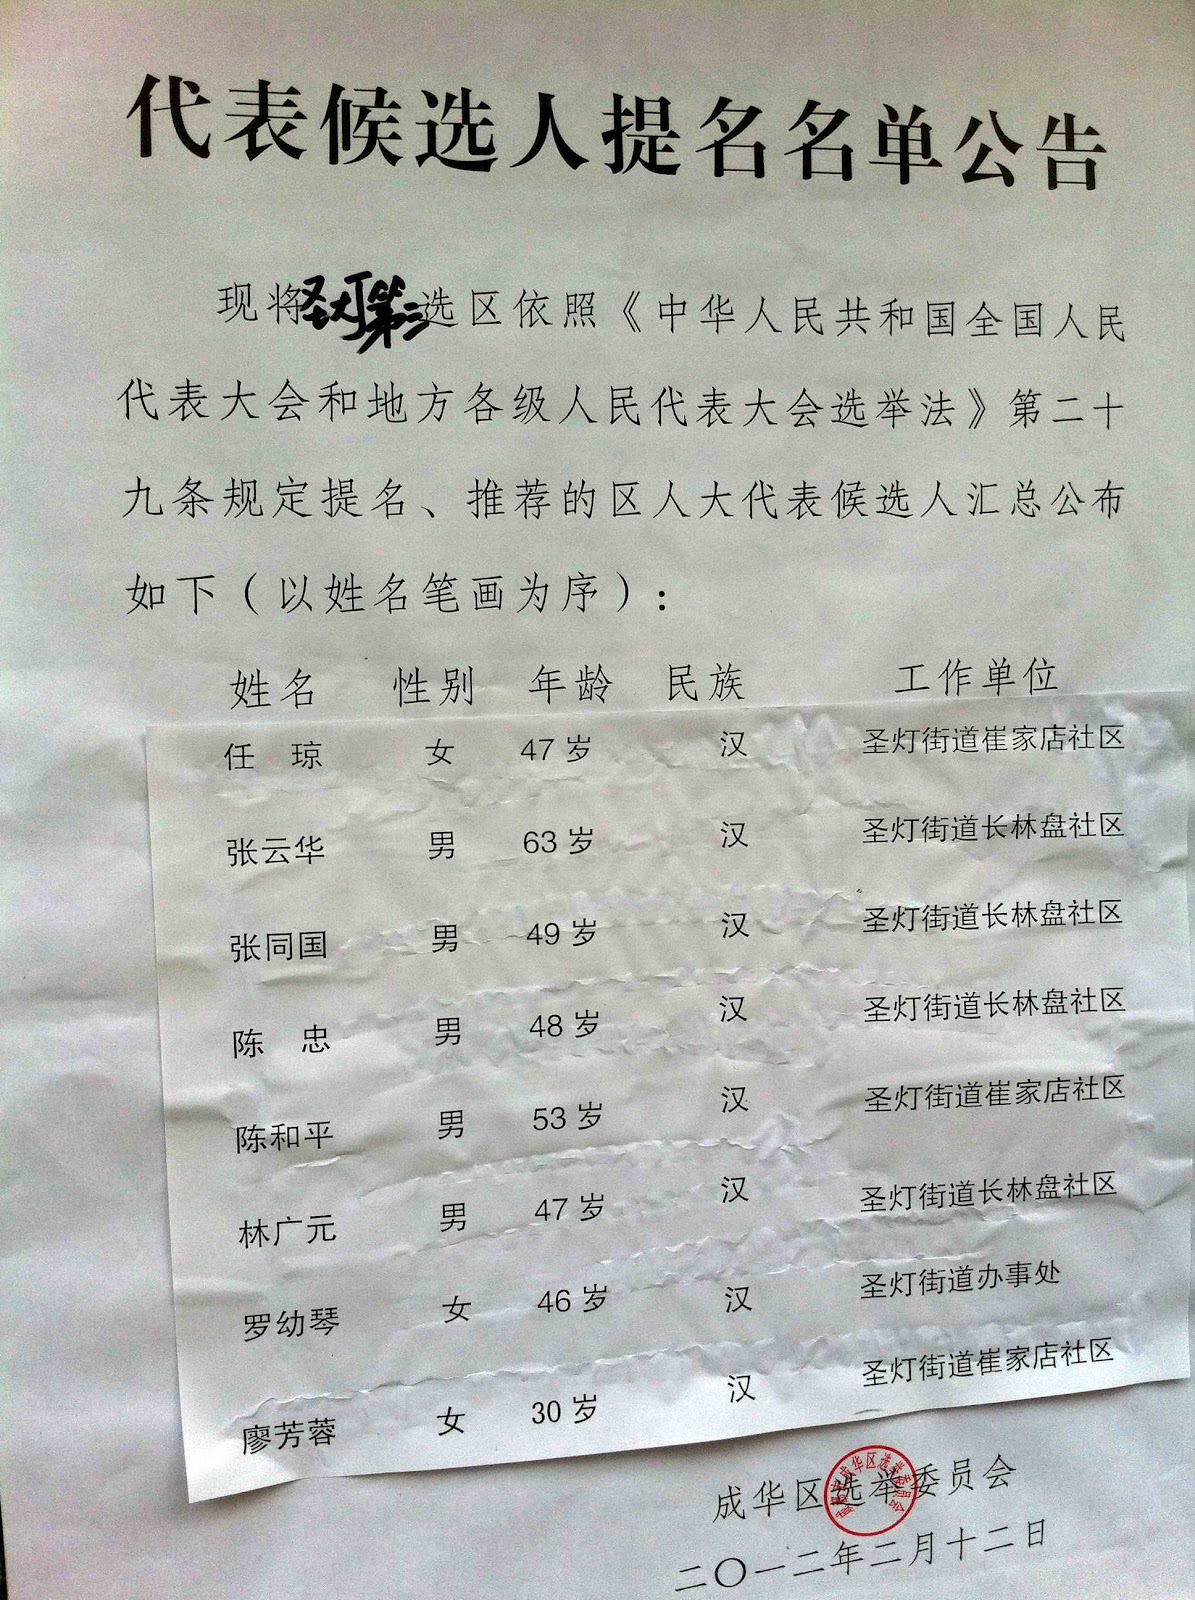 代表候选人提名名单公告
现将圣灯第三选区依照《中华人民共和国全国人民
代表大会和地方各级人民代表大会选举法》第二十
九条规定提名、推荐的区人大代表候选人汇总公布
如下（以姓名笔画为序）：
姓名 性别 年龄 民族 工作单位
任 琼 女 47 岁 汉 圣灯街道崔家店社区
张云华 男 63 岁 汉 圣灯街道长林盘社区
张同国 男 49 岁 汉 圣灯街道长林盘社区
陈 忠 男 48 岁 汉 圣灯街道长林盘社区
陈和平 男 53 岁 汉 圣灯街道崔家店社区
林广元 男 47 岁 汉 圣灯街道长林盘社区
罗幼琴 女 46 岁 汉 圣灯街道办事处
廖芳蓉 女 30 岁 汉 圣灯街道崔家店社区
成华区选举委员会
二〇一二年二月十二日